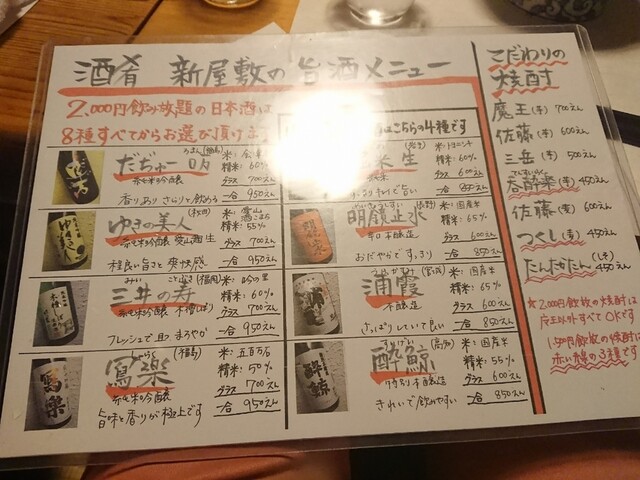 酒肴 新屋敷の旨酒メニュー
2,000円飲み放題の日本酒は
8種すべてからお選び頂けます
はこちらの4種です
(福島)
純米吟醸
精米:60%
グラス 700えん
一合 950えん
香りあり さらりと飲める
ゆきの美人
(秋田)
純米吟醸
精米:55%
グラス 700えん
一合 950えん
程良い旨さと爽快感
三井の寿
(福岡)
米:吟のさと
純米吟醸
精米:60%
グラス 700えん
一合 950えん
フレッシュで且つまろやか
寫楽
しゃらく
(福島)
米:五百万石
純米吟醸
精米:50%
グラス 700えん
一合 950えん
旨味と香りが極上です
精米:60%
グラス 600えん
一合 850えん
明鏡止水
(長野)
米:国産米
辛口 本醸造
精米:65%
グラス 600えん
一合 850えん
おだやかですっきり
浦霞
(宮城)
米:国産米
本醸造
精米:65%
グラス 600えん
一合 850えん
さっぱりしていて良い
酔鯨
(高知)
米:国産米
特別本醸造
精米:55%
グラス 600えん
一合 850えん
きれいで飲みやすい
こだわりの
焼酎
魔王(芋) 700えん
佐藤(芋) 600えん
三岳(芋) 500えん
呑酔楽(麦) 450えん
佐藤(麦) 600えん
つくし(麦) 450えん
たんたかたん(しそ) 450えん
★2,000円飲放の焼酎は
魔王以外すべてOKです
1,500円飲放の焼酎は
赤い線の3種です